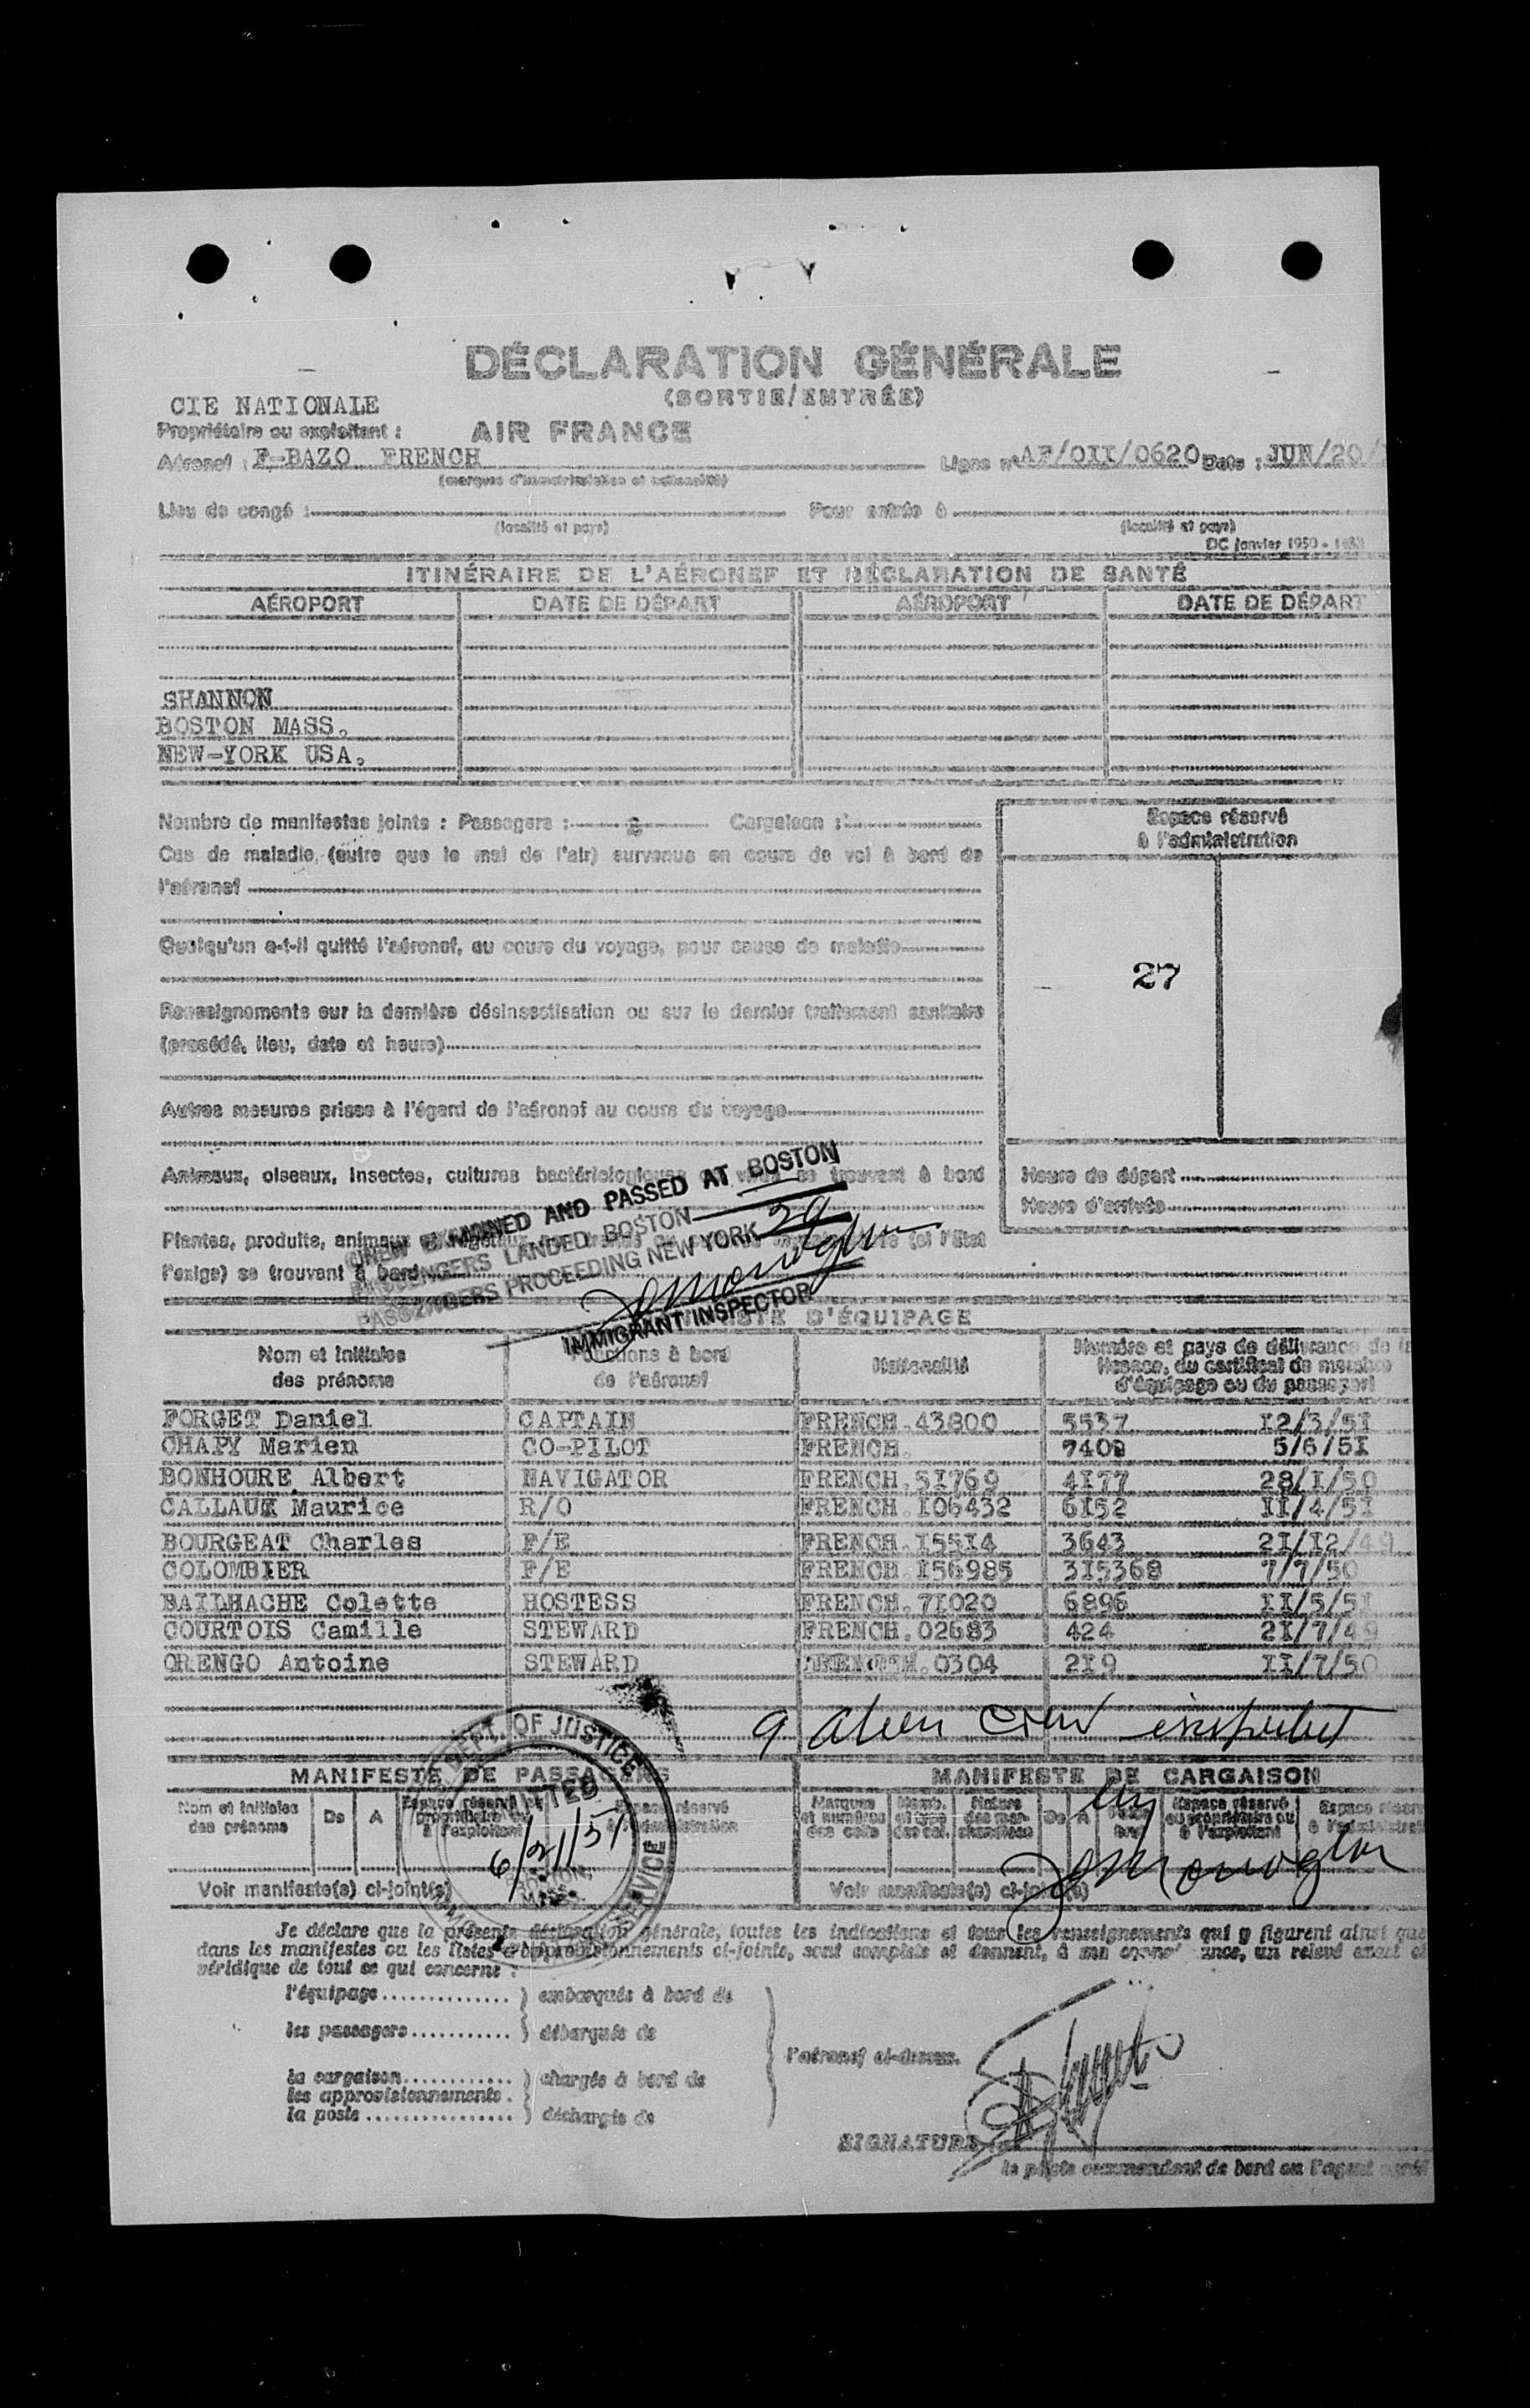 DÉCLARATION GÉNÉRALE
(SORTIE/ENTRÉE)
CIE NATIONALE
Propriétaire ou exploitant : AIR FRANCE
Aéronef : F-BAZO FRENCH Ligne n° AF/OII/0620 Date : JUN/20/
(marques d'immatriculation et nationalité)
Lieu de congé : Pour entrée à
(localité et pays) (localité et pays)
DC janvier 1950 -
ITINÉRAIRE DE L'AÉRONEF ET DÉCLARATION DE SANTÉ
AÉROPORT DATE DE DÉPART AÉROPORT DATE DE DÉPART
SHANNON
BOSTON MASS.
NEW-YORK USA.
Nombre de manifestes joints : Passagers : 2 Cargaison :
Espace réservé
à l'administration
Cas de maladie, (autre que le mal de l'air) survenus en cours de vol à bord de
l'aéronef
Quelqu'un a-t-il quitté l'aéronef, au cours du voyage, pour cause de maladie
27
Renseignements sur la dernière désinsectisation ou sur le dernier traitement sanitaire
(procédé, lieu, date et heure)
Autres mesures prises à l'égard de l'aéronef au cours du voyage
Animaux, oiseaux, insectes, cultures bactériologiques se trouvant à bord
Heure de départ
Heure d'arrivée
Plantes, produits, animaux (si l'état
l'exige) se trouvant à bord
CREW EXAMINED AND PASSED AT BOSTON
PASSENGERS LANDED BOSTON
PASSENGERS PROCEEDING NEW YORK 29
IMMIGRANT INSPECTOR
D'ÉQUIPAGE
Nom et initiales
des prénoms
Fonctions à bord
de l'aéronef
Nationalité
Numéro et pays de délivrance de la
licence, du certificat de membre
d'équipage ou du passeport
FORGET Daniel CAPTAIN FRENCH.43800 5537 I2/3/5I
CHAPY Marien CO-PILOT FRENCH. 7402 5/6/5I
BONHOURE Albert NAVIGATOR FRENCH.5I769 4I77 28/I/50
CALLAUX Maurice R/O FRENCH.I06432 6I52 II/4/5I
BOURGEAT Charles F/E FRENCH.I55I4 3643 2I/I2/49
COLOMBIER F/E FRENCH.I56985 3I5368 7/7/50
BAILHACHE Colette HOSTESS FRENCH.7I020 6896 II/5/5I
COURTOIS Camille STEWARD FRENCH.02683 424 2I/7/49
ORENGO Antoine STEWARD FRENCH.0304 2I9 II/7/50
9 alien crew inspected
by
DEPT. OF JUSTICE
6/21/51
BOSTON,
MASS.
SERVICE
MANIFESTE DE PASSAGERS MANIFESTE DE CARGAISON
Nom et initiales
des prénoms
De A
Espace réservé
à l'exploitant
Espace réservé
à l'administration
Marques
et numéros
des colis
Nomb.
et type
des col.
Nature
des mar-
chandises
De A
Espace réservé
au propriétaire ou
à l'exploitant
Voir manifeste(s) ci-joint(s) Voir manifeste(s) ci-joint(s)
Je déclare que la présente déclaration générale, toutes les indications et tous les renseignements qui y figurent ainsi que
dans les manifestes ou les listes d'approvisionnements ci-jointe, sont complets et donnent, à ma connaissance, un relevé exact et
véridique de tout ce qui concerne :
l'équipage ) embarqués à bord de
les passagers ) débarqués de
l'aéronef ci-dessus.
la cargaison ) chargés à bord de
les approvisionnements
la poste ) déchargés de
SIGNATURE
le pilote commandant de bord ou l'agent